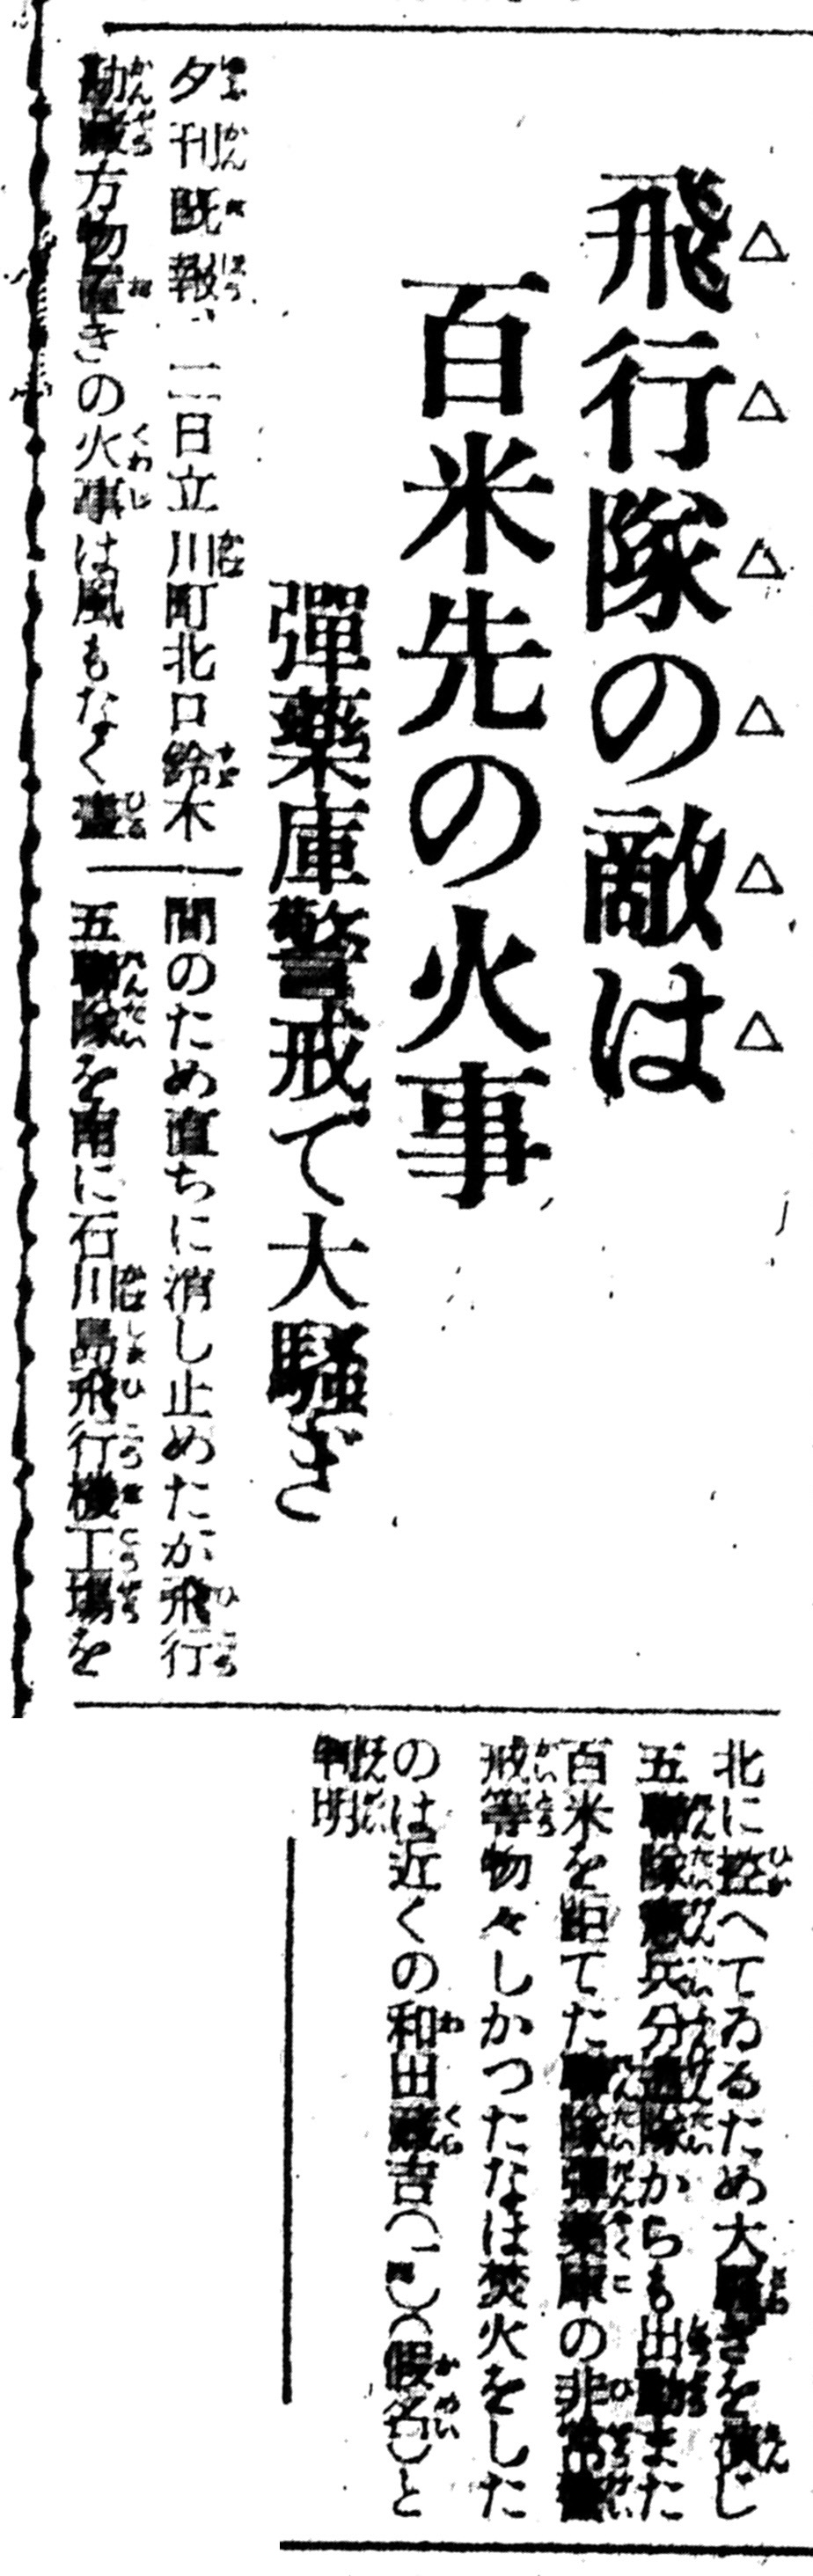 飛行隊の敵は
百米先の火事
彈藥庫警戒て大騒ぎ
夕刊既報、二日立川町北口鈴木
勘藏方物置きの火事は風もなく晝
間のため直ちに消し止めたが飛行
五聯隊を南に石川島飛行機工場を
北に控へてゐるため大騒ぎを演じ
五聯隊憲兵分遣隊からも出動また
百米を距てた聯隊彈藥庫の非常警
戒等物々しかつたなほ焚火をした
のは近くの和田吉(一)(假名)と
判明